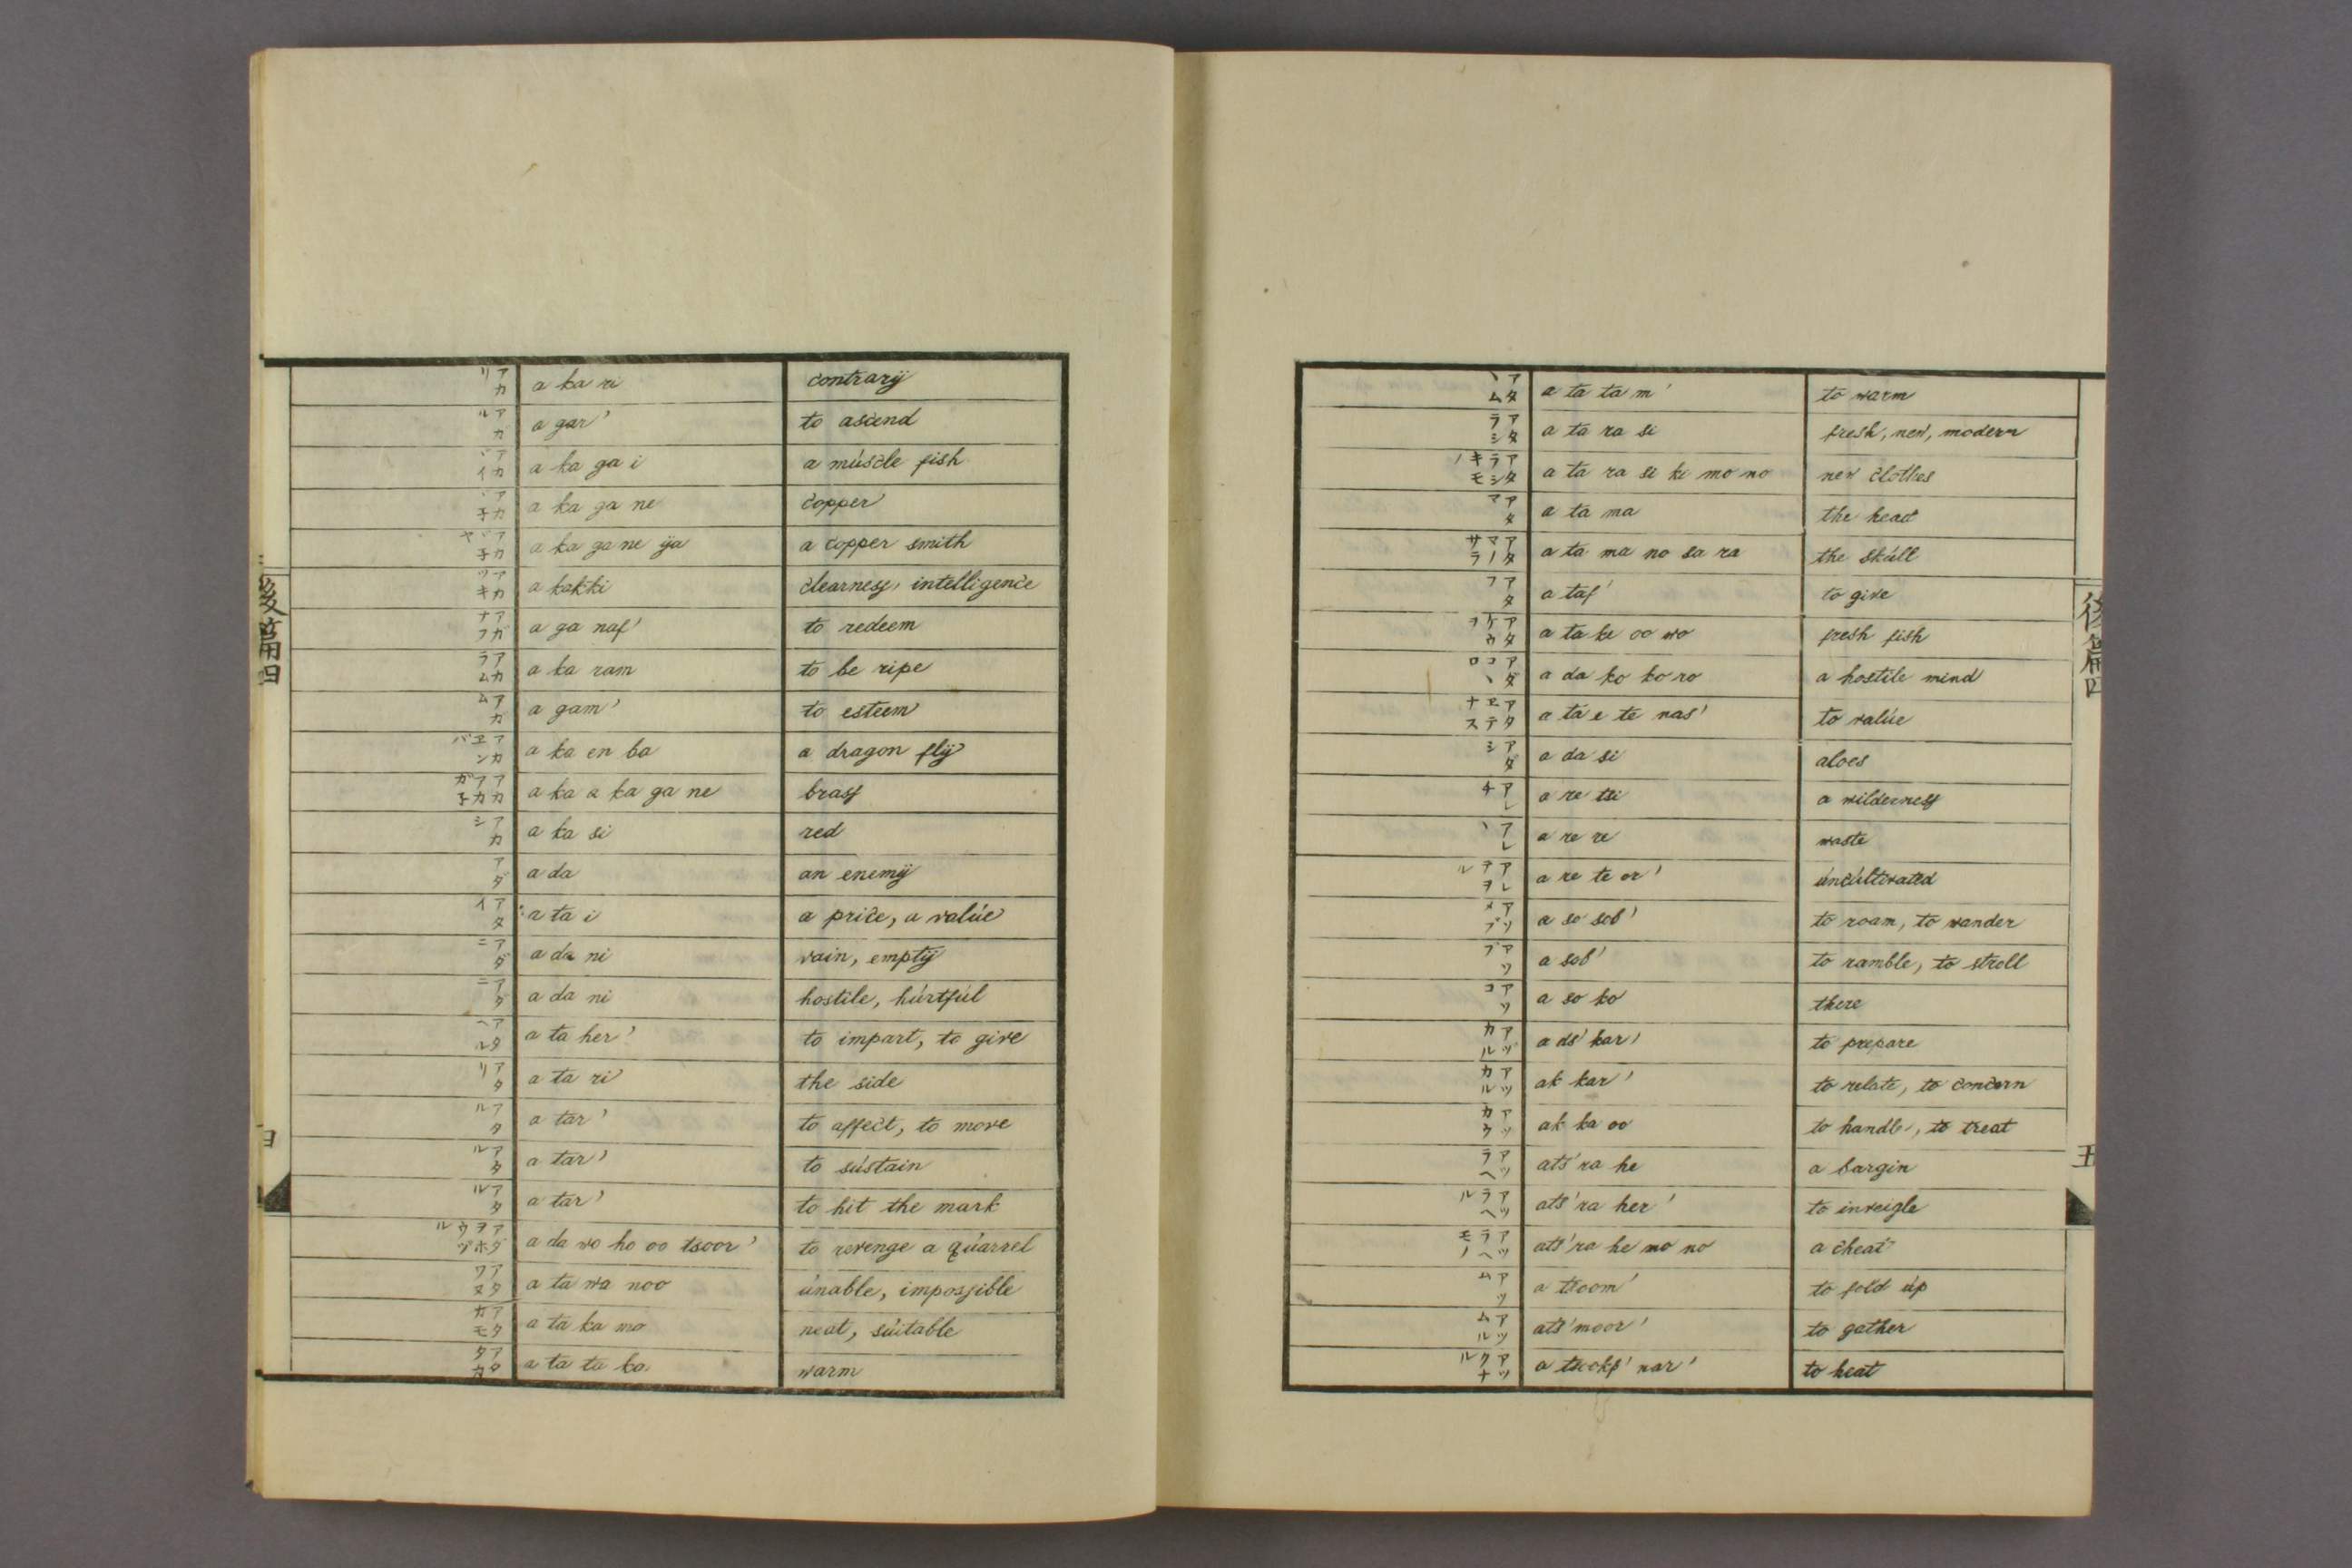 アカリ a ka ri contrarÿ
アガル a gar' to ascend
アカヾイ a ka ga i a múscle fish
アカヾ子 a ka ga ne copper
アカヾ子ヤ a ka ga ne ÿa a copper smith
アカツキ a kak ki clearness, intelligence
アガナフ a ga naf' to redeem
アカラム a ka ram to be ripe
アガム a gam' to esteem
アカヱンバ a ka en ba a dragon flÿ
アカアカガ子 a ka a ka ga ne brass
アカシ a ka si red
アダ a da an enemÿ
アタイ a ta i a price, a valúe
アダニ a da ni vain, emptÿ
アダニ a da ni hostile, húrtfúl
アタヘル a ta her' to impart, to give
アタリ a ta ri the side
アタル a tar' to affect, to move
アタル a tar' to sústain
アタル a tar' to hit the mark
アダヲホウヅル a da wo ho oo tsoor' to revenge a qúarrel
アタワヌ a ta wa noo únable, impossible
アタカモ a ta ka mo neat, súitable
アタタカ a ta ta ka warm
後篇四
アタヽム a ta ta m' to warm
アタラシ a ta ra si fresh, new, modern
アタラシキモノ a ta ra si ki mo no new clothes
アタマ a ta ma the head
アタマノサラ a ta ma no sa ra the skúll
アタフ a taf' to give
アタケウヲ a ta ke oo wo fresh fish
アダコヽロ a da ko ko ro a hostile mind
アタヱテナス a ta e te nas' to valúe
アダシ a da si aloes
アレチ a re tsi a wilderness
アレヽ a re re waste
アレテヲル a re te or' úncúltivated
アソメブ a so sob' to roam, to wander
アソブ a sob' to ramble, to stroll
アソコ a so ko there
アヅカル a ds' kar' to prepare
アツカル ak kar' to relate, to concern
アツカウ ak ka oo to handle, to treat
アツラヘ ats' ra he a bargin
アツラヘル ats' ra her' to inveigle
アツラヘモノ ats' ra he mo no a cheat
アツム a tsoom' to fold úp
アツムル ats' moor' to gather
アツクナル a tsookf' nar' to heat
後篇四
五